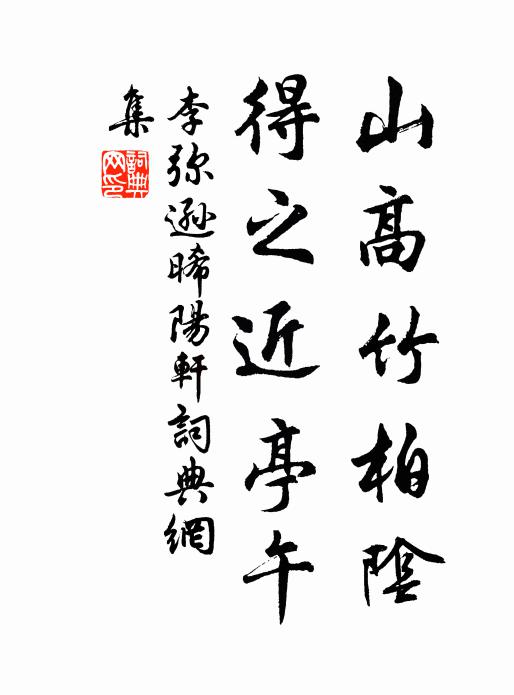 山高竹柏陰
得之近亭午
李弥遜晞陽軒詞典網
集
詞典网印